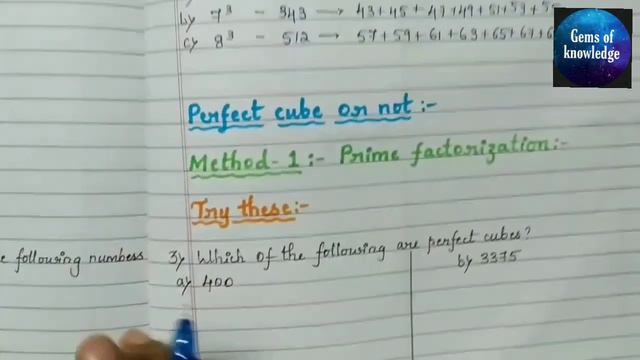 b) 7³ - 343 → 43+45+47+49+51+53+55
c) 8³ - 512 → 57+59+61+63+65+67+6
Gems of
knowledge
Perfect cube or not:-
Method-1:- Prime factorization:-
Try these:-
e following numbers
3) Which of the following are perfect cubes?
a) 400
b) 3375